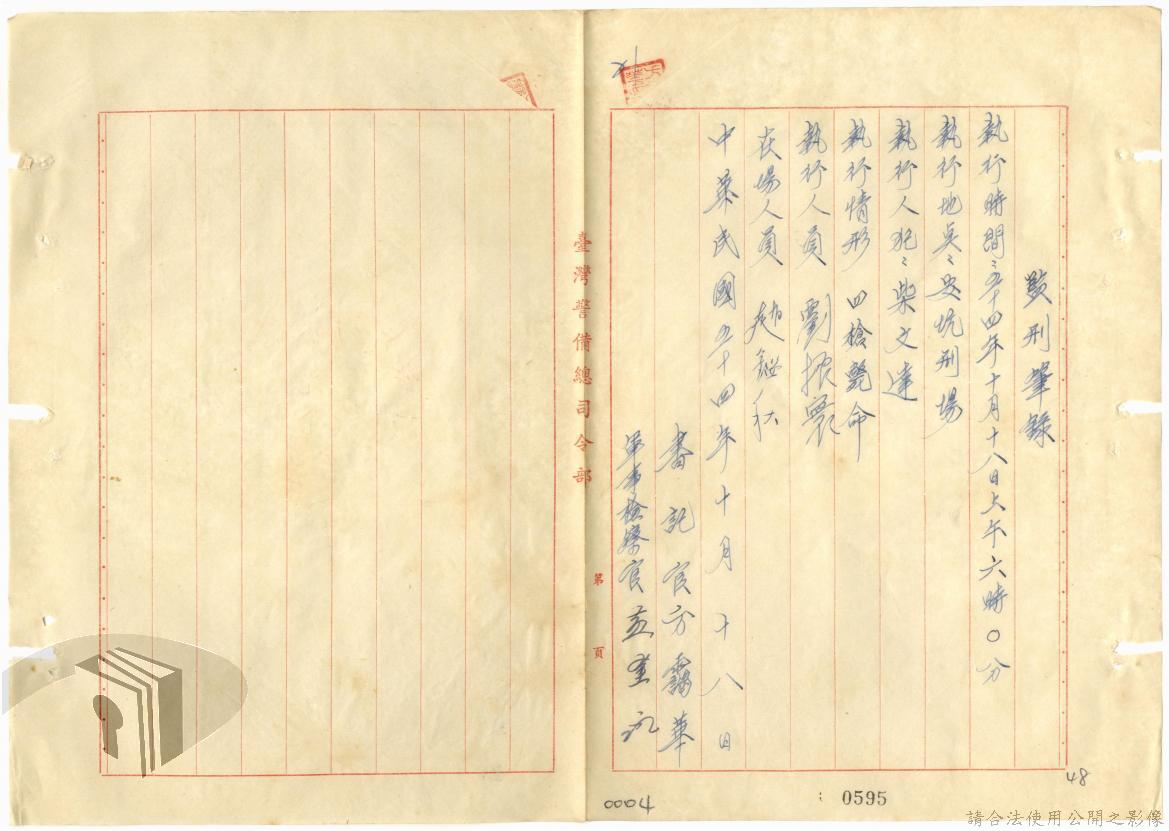 槷刑筆錄
執行時間:五十四年十月十八日上午六時〇分
執行地點:安坑刑場
執行人犯:柴文達
執行情形 四槍斃命
執行人員 劉振寰
在場人員 趙鎰秋
中華民國五十四年十月十八日
書記官方靄華
軍事檢察官
臺灣警備總司令部
第 頁
0004
0595
48
請合法使用公開之影像